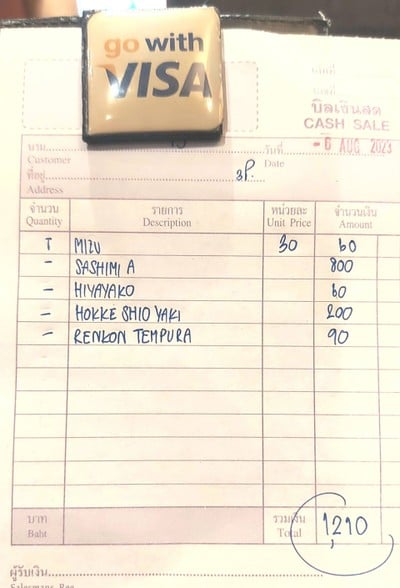 go with
VISA
เลขที่
บิลเงินสด
CASH SALE
นาม
วันที่ - 6 AUG 2023
Customer
Date
ที่อยู่ 3P.
Address
จำนวน รายการ หน่วยละ จำนวนเงิน
Quantity Description Unit Price Amount
T MIZU 30 60
- SASHIMI A 800
- HIYAYAKO 60
- HOKKE SHIO YAKI 200
- RENKON TEMPURA 90
บาท รวมเงิน 1210
Baht Total
ผู้รับเงิน